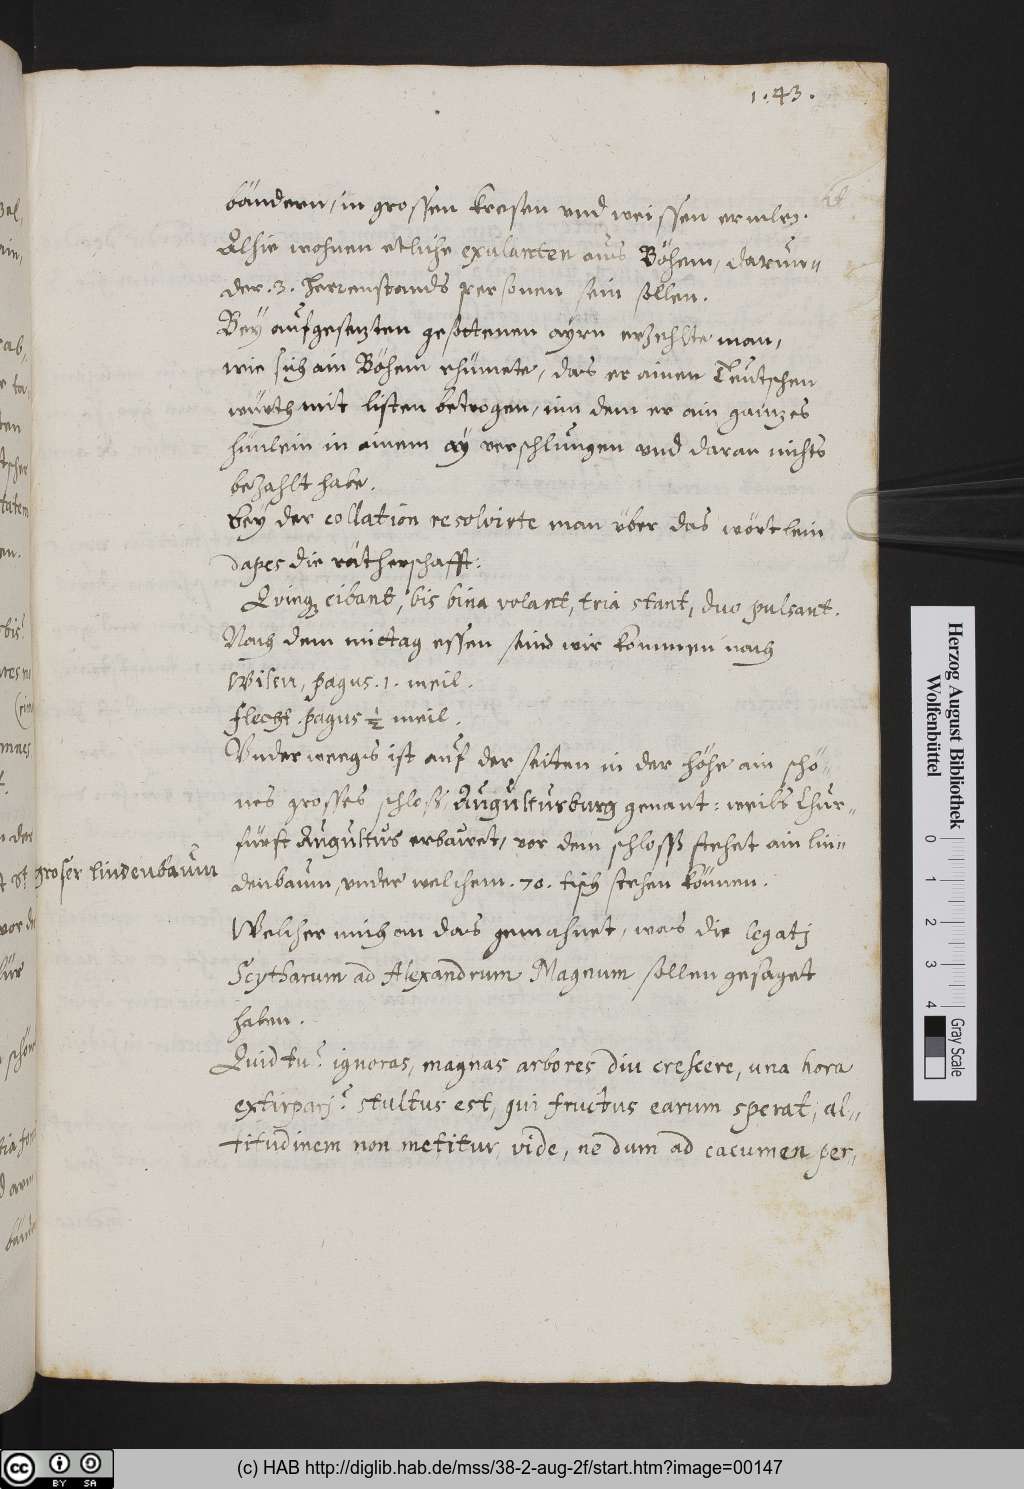 1.43.
bändern, in grossen kresen vnd weissen ermlen.
Alhie wohnen etliche exulanten aus Böhem, darun=
der .3. herrenstands personen sein sollen.
Bey aufgesezten gesottenen ayrn erzehlte man,
wie sich ain Böhem rhümete, das er ainen Teutschen
würth mit listen betrogen, inn dem er ain ganzes
hünlein in ainem ay verschlungen vnd daran nichts
bezahlt habe.
Bey der collation resolvirte man über das wörtlein
dapes die rätherschafft:
Qvinq3 cibant, bis bina volant, tria stant, duo pulsant.
Nach dem mittag essen seind wir kommen nach
Wisen, pagus .1. meil.
pagus ½ meil.
Vnder weegs ist auf der seiten in der höhe ain schö=
nes grosses schloss, Augustusburg genant: welchs Chur=
fürst Augustus erbauwet, vor dem schloss stehet ain lin=
groser lindenbaum
denbaum, vnder welchem .70. tisch stehen können.
Welcher mich an das gemahnet, was die legatj
Scytharum ad Alexandrum Magnum sollen gesaget
haben.
Quid tu? ignoras, magnas arbores diu crescere, una hora
extirparj? stultus est, qui fructus earum sperat, al=
titudinem non metitur, vide, ne dum ad cacumen per=
Herzog August Bibliothek
Wolfenbüttel
0 1 2 3 4
Gray Scale
cc BY SA
(c) HAB http://diglib.hab.de/mss/38-2-aug-2f/start.htm?image=00147